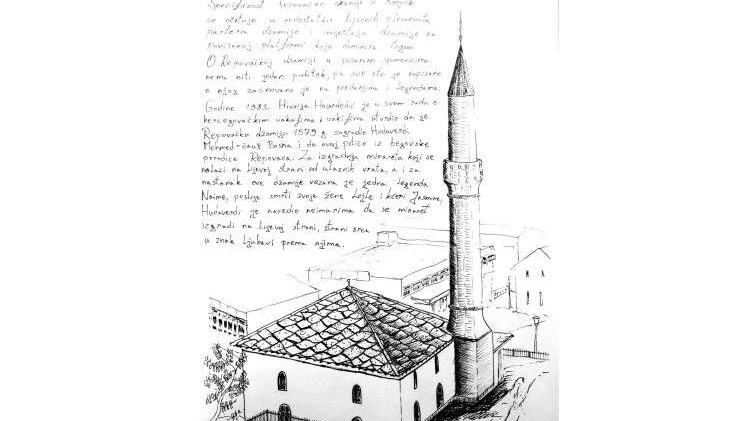 Specifičnost Repovačke džamije u Konjicu
se očituje u nedostatku tipičnih elemenata
partera džamije i smještaja džamije na
povišenoj platformi koja dominira trgom
O Repovačkoj džamiji u pisanim spomenicima
nema niti jedan podatak, pa sve što je napisano
o njoj zasnovano je na predanjima i legendama.
Godine 1983. Hivzija Hasandedić je u svom radu o
hercegovačkim vakufima i vakifima utvrdio da je
Repovačku džamiju 1579 g. sagradio Hudaverdi
Mehmed-čauš Bosna i da ovaj potiče iz begovske
porodice Repovaca. Za izgradnju minareta koji se
nalazi na lijevoj strani od ulaznih vrata, a i za
nastanak ove džamije vezana je jedna legenda
Naime, poslije smrti svoje žene Lejle i kćeri Jasmine,
Hudaverdi je naredio neimarima da se minaret
izgradi na lijevoj strani, strani srca
u znak ljubavi prema njima.